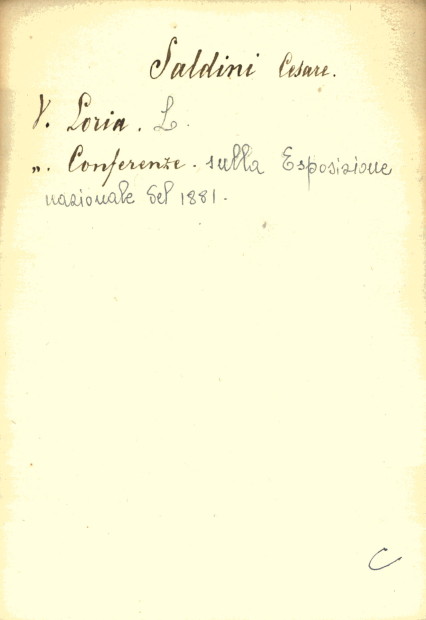 Saldini Cesare.
V. Loria. L.
„. Conferenze. sulla Esposizione
nazionale del 1881.
C